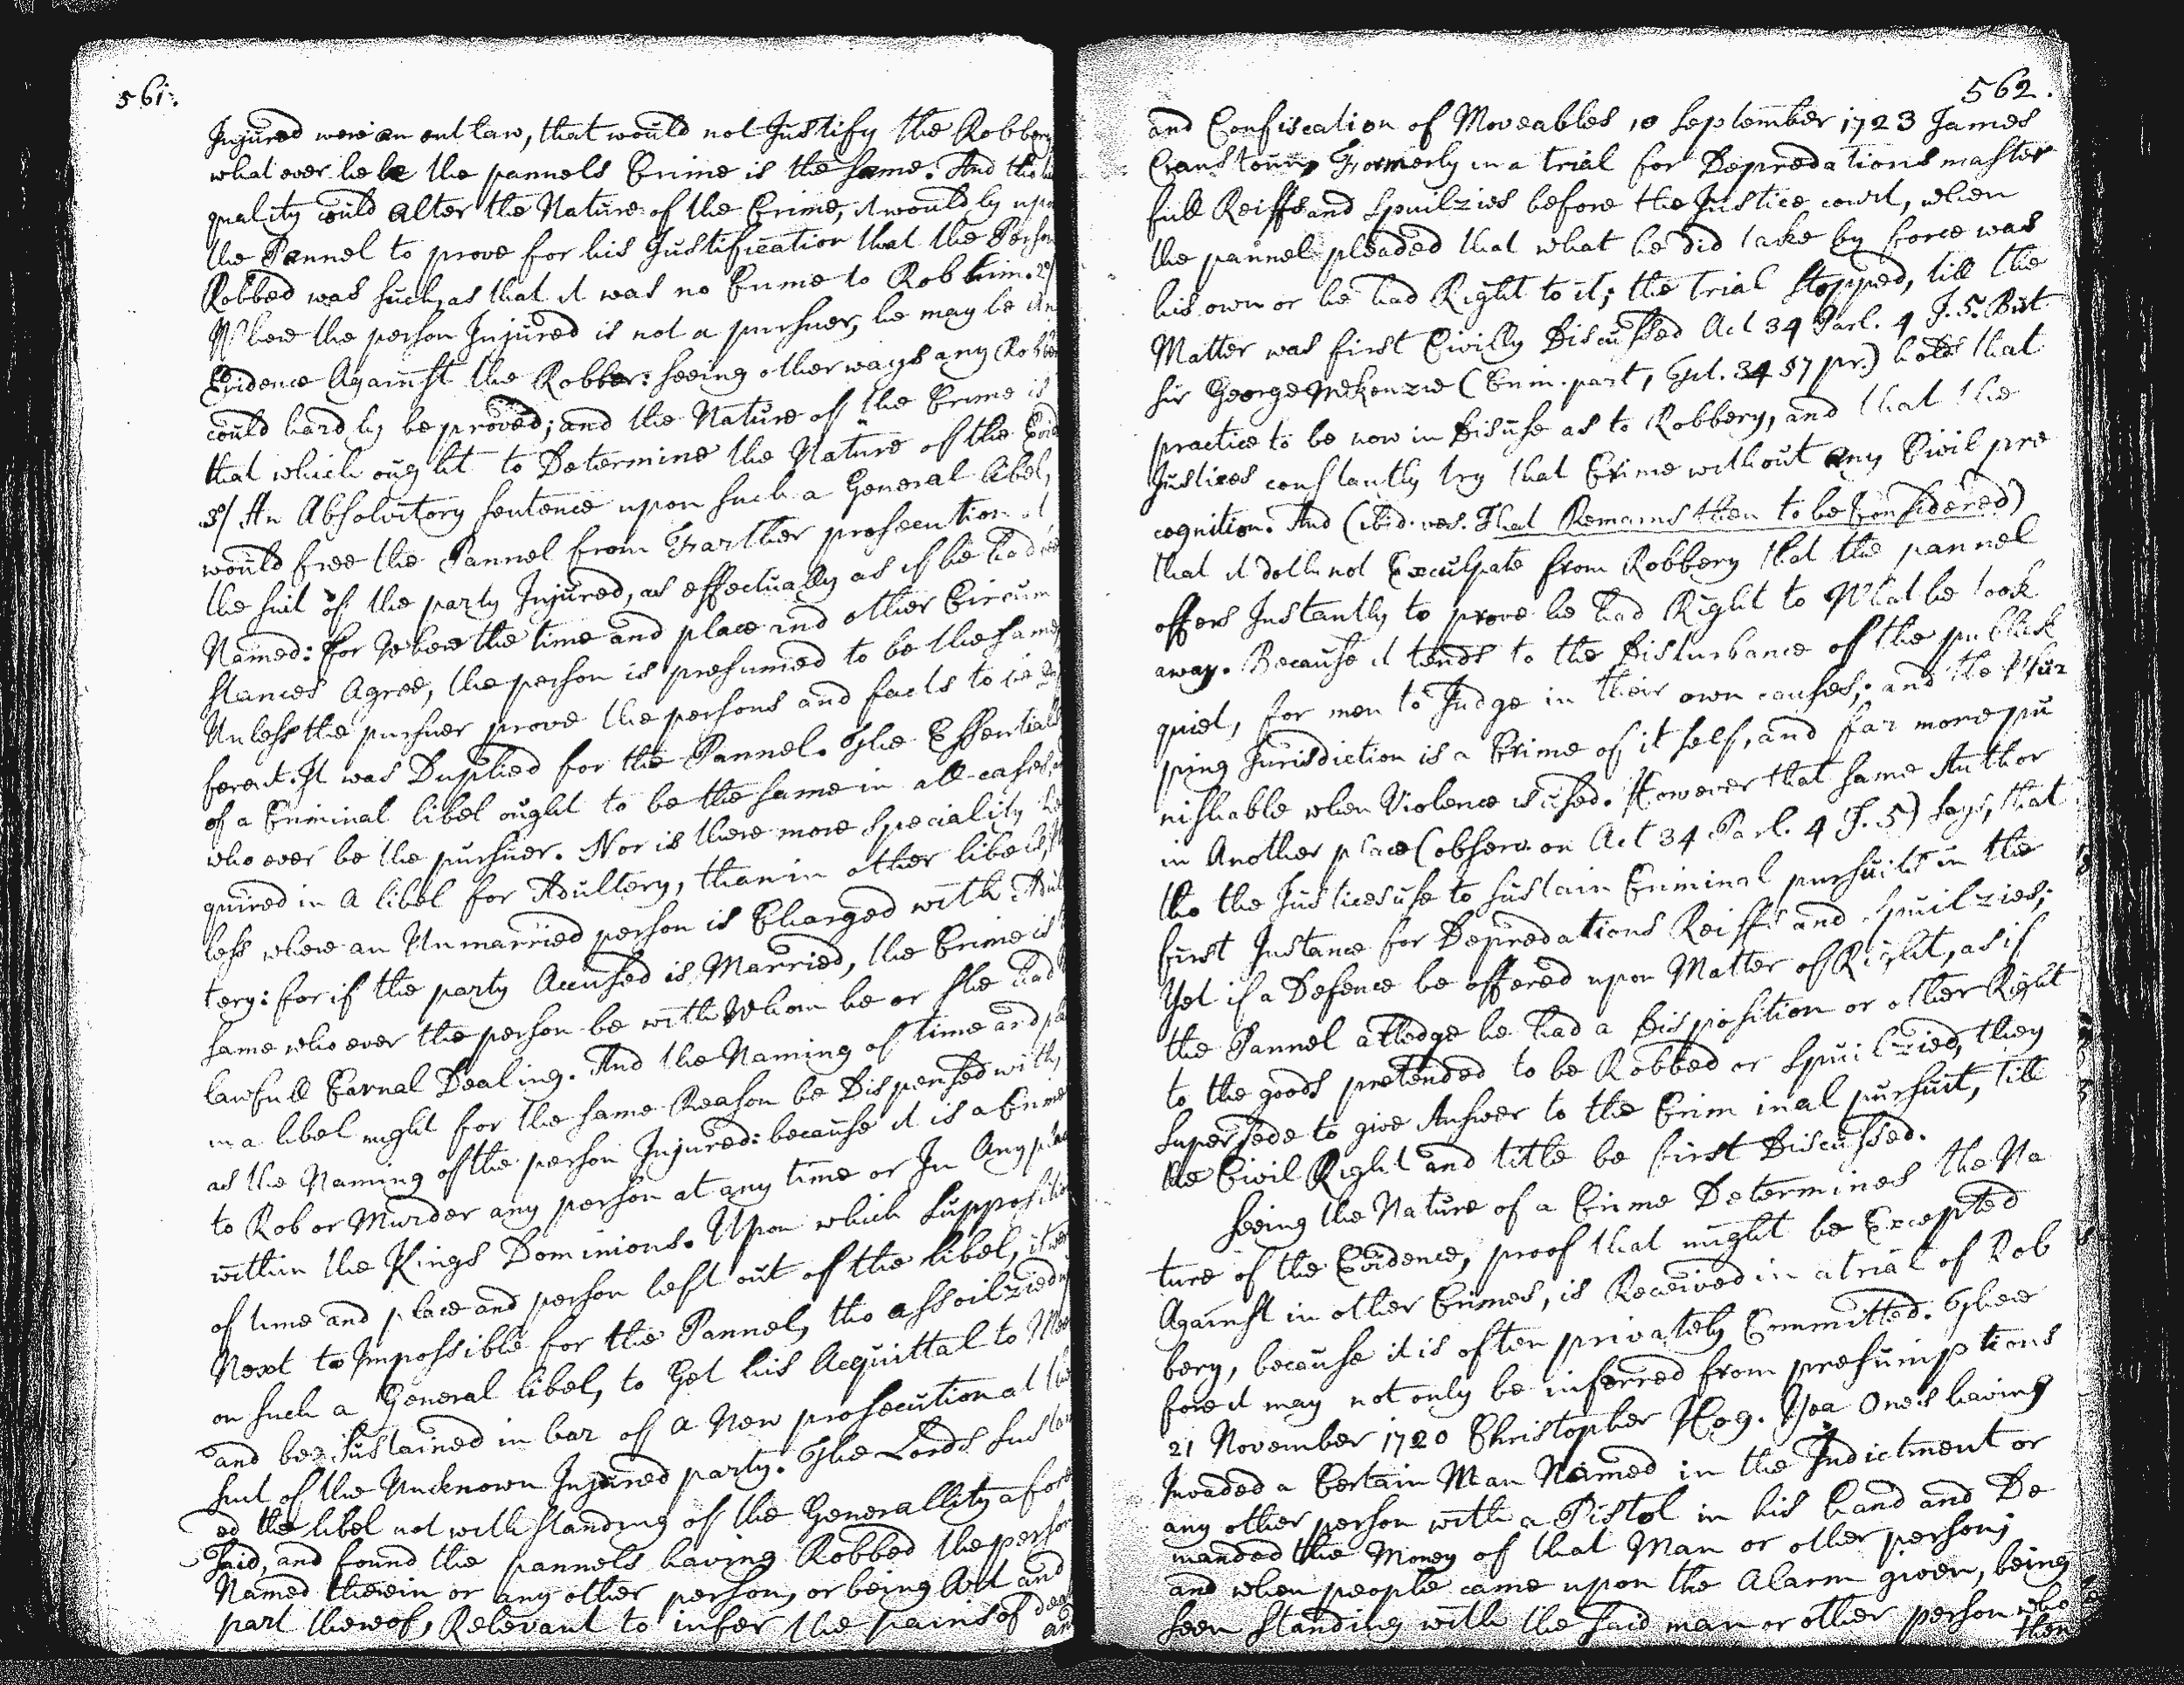 561.
Injured were an out law, that would not Justify the Robbery
what ever he be the pannels Crime is the same. And tho the
quality could alter the Nature of the Crime, it would ly upon
the Pannel to prove for his Justification that the Person
Robbed was such, as that it was no Crime to Rob him. 2o/
Where the person Injured is not a pursuer, he may be an
Evidence Against the Robber: seeing otherways any Robbery
could hardly be proved; and the Nature of the Crime is
that which ought to Determine the Nature of the Evid
3o/ An Absolvitory sentence upon such a General libel,
would free the Pannel from Farther prosecution at
the suit of the party Injured, as effectually as if he had been
Named: for Where the time and place and other Circum
stances Agree, the person is presumed to be the same,
Unless the pursuer prove the persons and facts to be dif
ferent. It was Duplied for the Pannel. The Essentials
of a Criminal libel ought to be the same in all cases,
who ever be the pursuer. Nor is there more speciality re
quired in a libel for Adultery, than in other libels, un
less where an Unmarried person is Charged with Adul
tery: for if the party Accused is Married, the Crime is the
same who ever the person be with Whom he or she had
lawfull Carnal Dealing. And the Naming of time and place
in a libel might for the same Reason be Dispensed with,
as the Naming of the person Injured: because it is a Crime
to Rob or Murder any person at any time or In Any place
within the Kings Dominions. Upon which Supposition
of time and place and person left out of the libel, it were
Next to Impossible for the Pannel, tho assoilzied
on such a General libel, to Get his Acquittal to Meet
and be sustained in bar of a New prosecution at the
suit of the Unknown Injured party. The Lords Sustain
ed the libel notwithstanding of the Generallity afore
said, and found the pannels having Robbed the person
Named therein or any other person, or being Art and
part thereof, Relevant to infer the pains of death
and
562.
and Confiscation of Moveables 10 September 1723 James
Cranstoun. Formerly in a trial for Depredations master
full Reiffs and Spuilzies before the Justice court, when
the pannel pleaded that what he did take by force was
his own or he had Right to it; the trial stopped, till the
Matter was first Civilly Discussed Act 34 Parl. 4 J. 5. But
Sir George McKenzie (Crim. part 1 Tit. 24 §7 pr.) holds that
practice to be now in Disuse as to Robbery, and that the
Justices constantly try that Crime without any Civil pre
cognition. And (ibid. ves. That Remains then to be Considered)
that it doth not Exculpate from Robbery that the pannel
offers Instantly to prove he had Right to What he took
away. Because it tends to the Disturbance of the publick
quiet, for men to Judge in their own causes; and the Usur
ping Jurisdiction is a Crime of it self, and far more pu
nishable when Violence is used. However that same Author
in Another place (observ. on Act 34 Parl. 4 J. 5) says, that
tho the Justices use to sustain Criminal pursuits in the
first Instance for Depredations Reiffs and Spuilzies;
Yet if a Defence be offered upon Matter of Right, as if
the Pannel alledge he had a Disposition or other Right
to the goods pretended to be Robbed or Spuilzied, they
Supersede to give Answer to the Criminal pursuit, till
the Civil Right and title be first Discussed.
Seeing the Nature of a Crime Determines the Na
ture of the Evidence, proof that might be Excepted
Against in other Crimes, is Received in a trial of Rob
bery, because it is often privately Committed. There
fore it may not only be inferred from presumptions
21 November 1720 Christopher Hog. Yea One's having
Invaded a Certain Man Named in the Indictment or
any other person with a Pistol in his hand and De
manded the Money of that Man or other person;
and when people came upon the Alarm given, being
seen standing with the said man or other person who
then